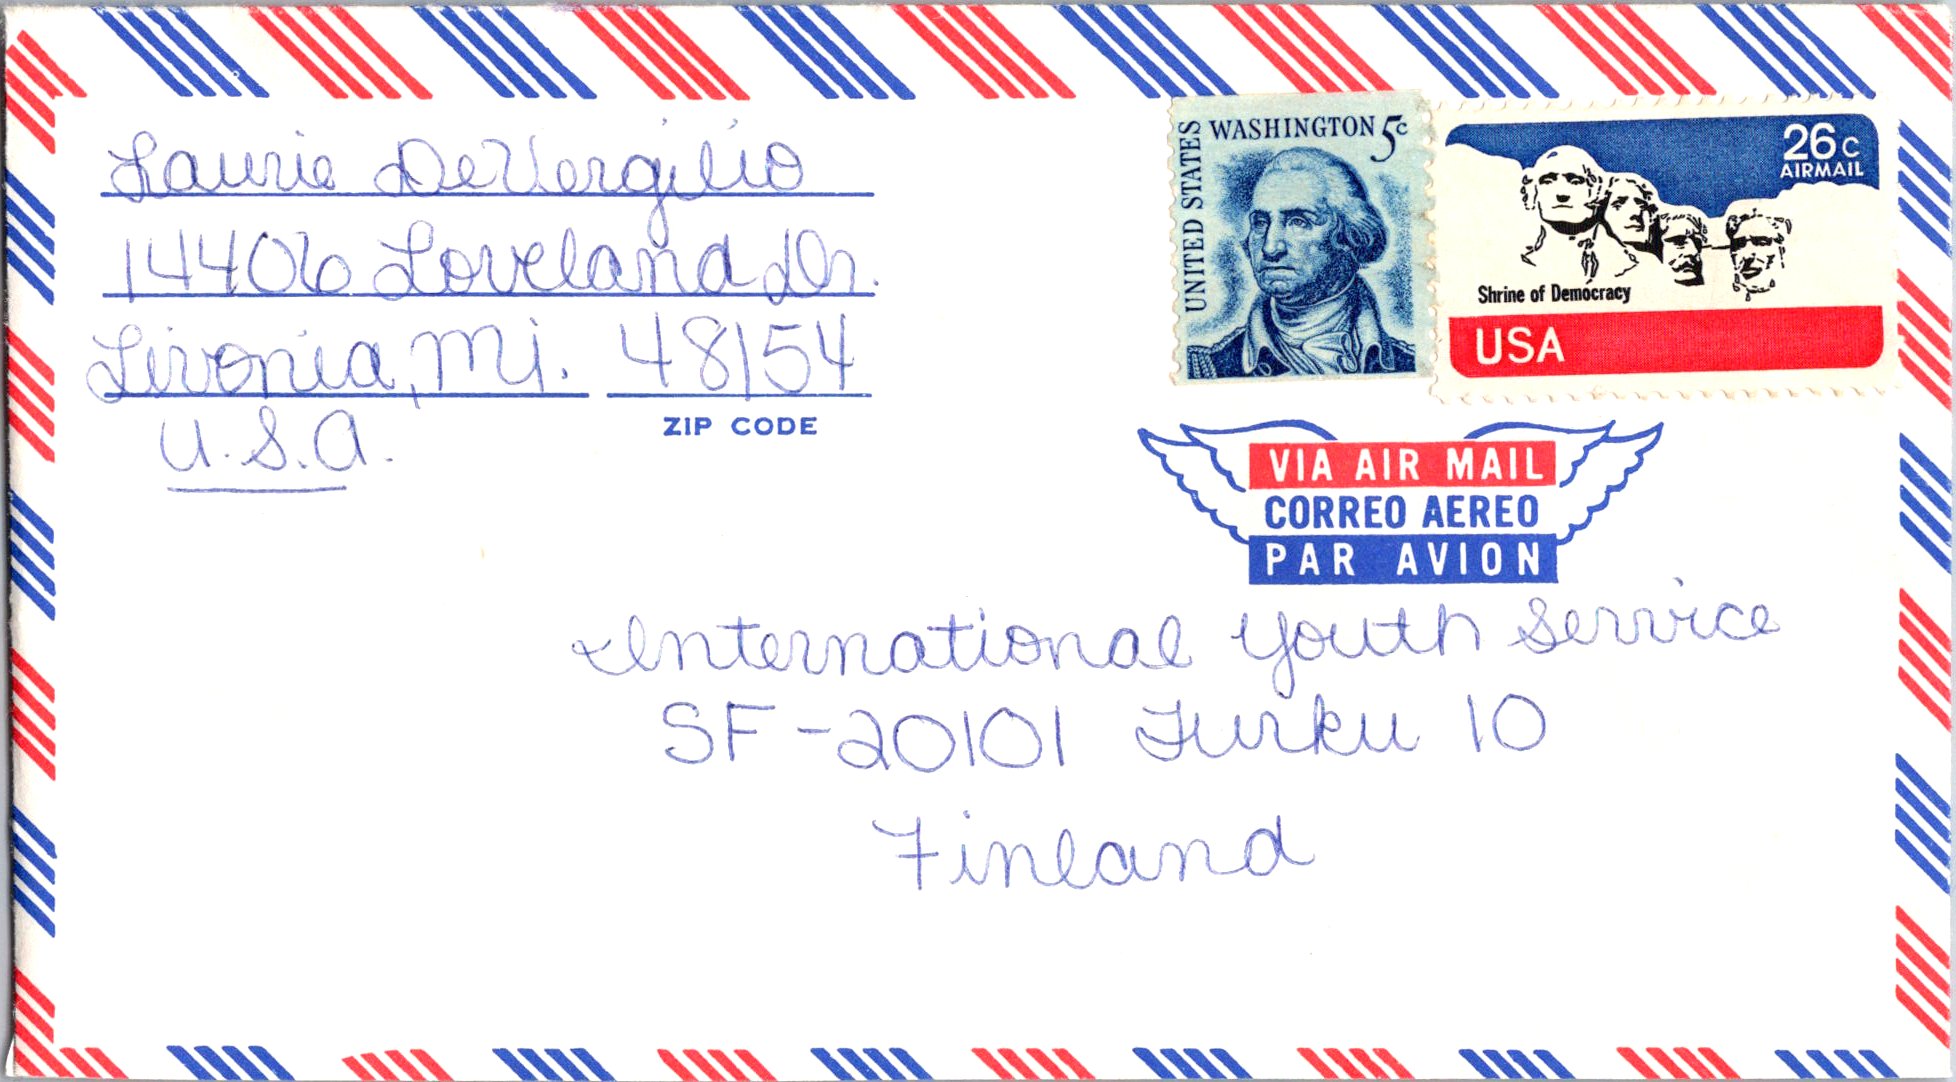 Laurie DeVergilio
14406 Loveland Dr.
Livonia, Mi. 48154
ZIP CODE
U.S.A.
UNITED STATES
WASHINGTON 5c
26c
AIRMAIL
Shrine of Democracy
USA
VIA AIR MAIL
CORREO AEREO
PAR AVION
International Youth Service
SF-20101 Turku 10
Finland